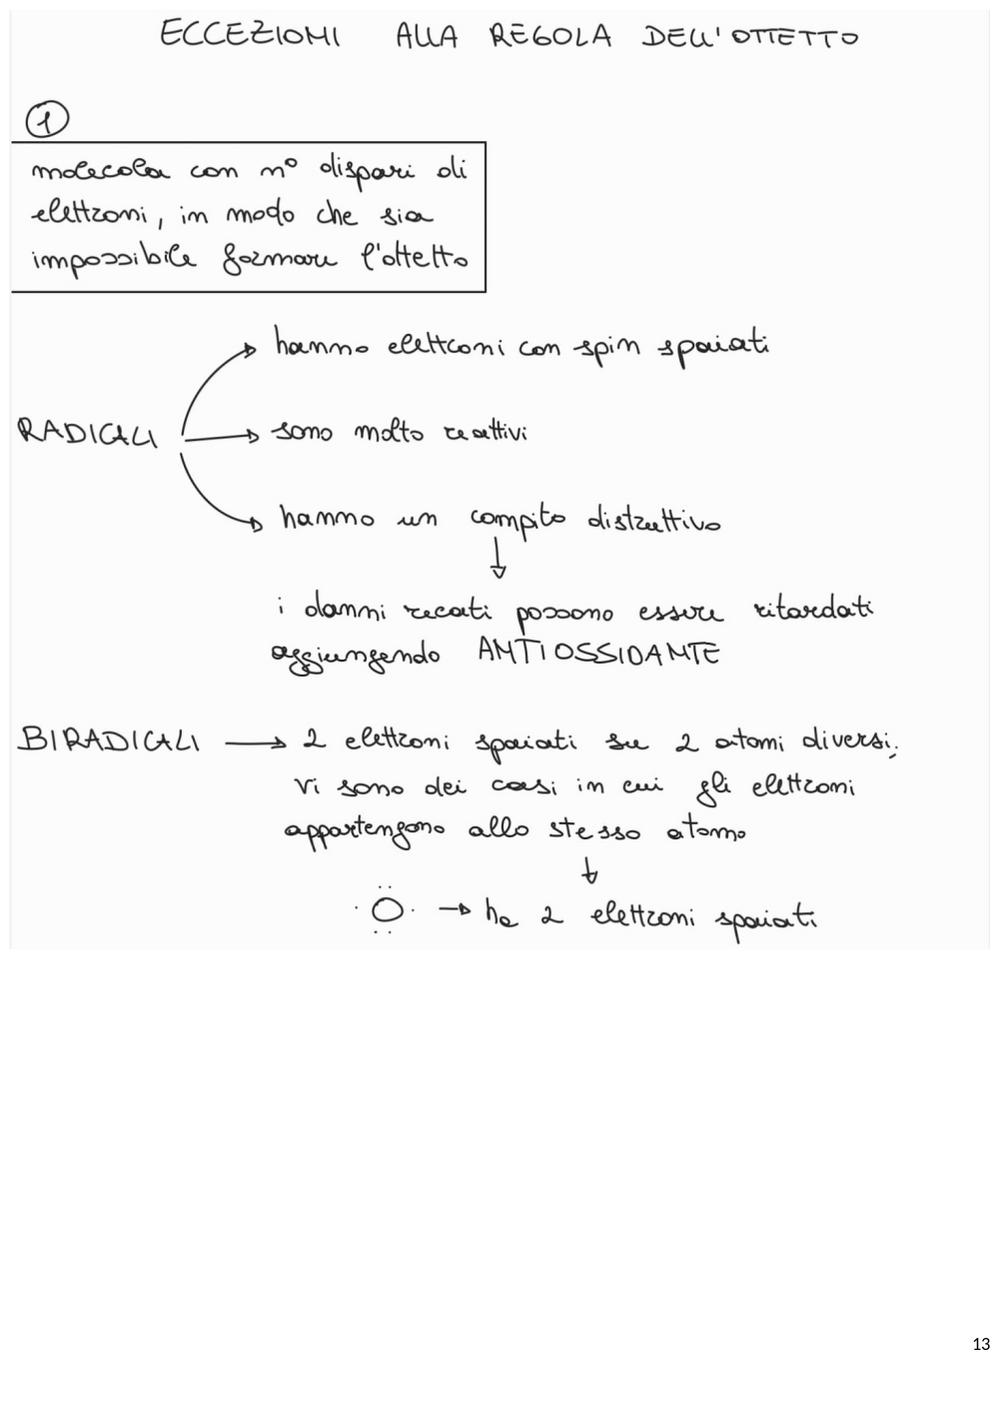 ECCEZIONI ALLA REGOLA DELL'OTTETTO
1
molecola con n° dispari di
elettroni, in modo che sia
impossibile formare l'ottetto
→ hanno elettroni con spin spaiati
RADICALI → sono molto reattivi
→ hanno un compito distruttivo
↓
i danni recati possono essere ritardati
aggiungendo ANTIOSSIDANTE
BIRADICALI → 2 elettroni spaiati su 2 atomi diversi.
Vi sono dei casi in cui gli elettroni
appartengono allo stesso atomo
↓
·Ö· → ha 2 elettroni spaiati
13